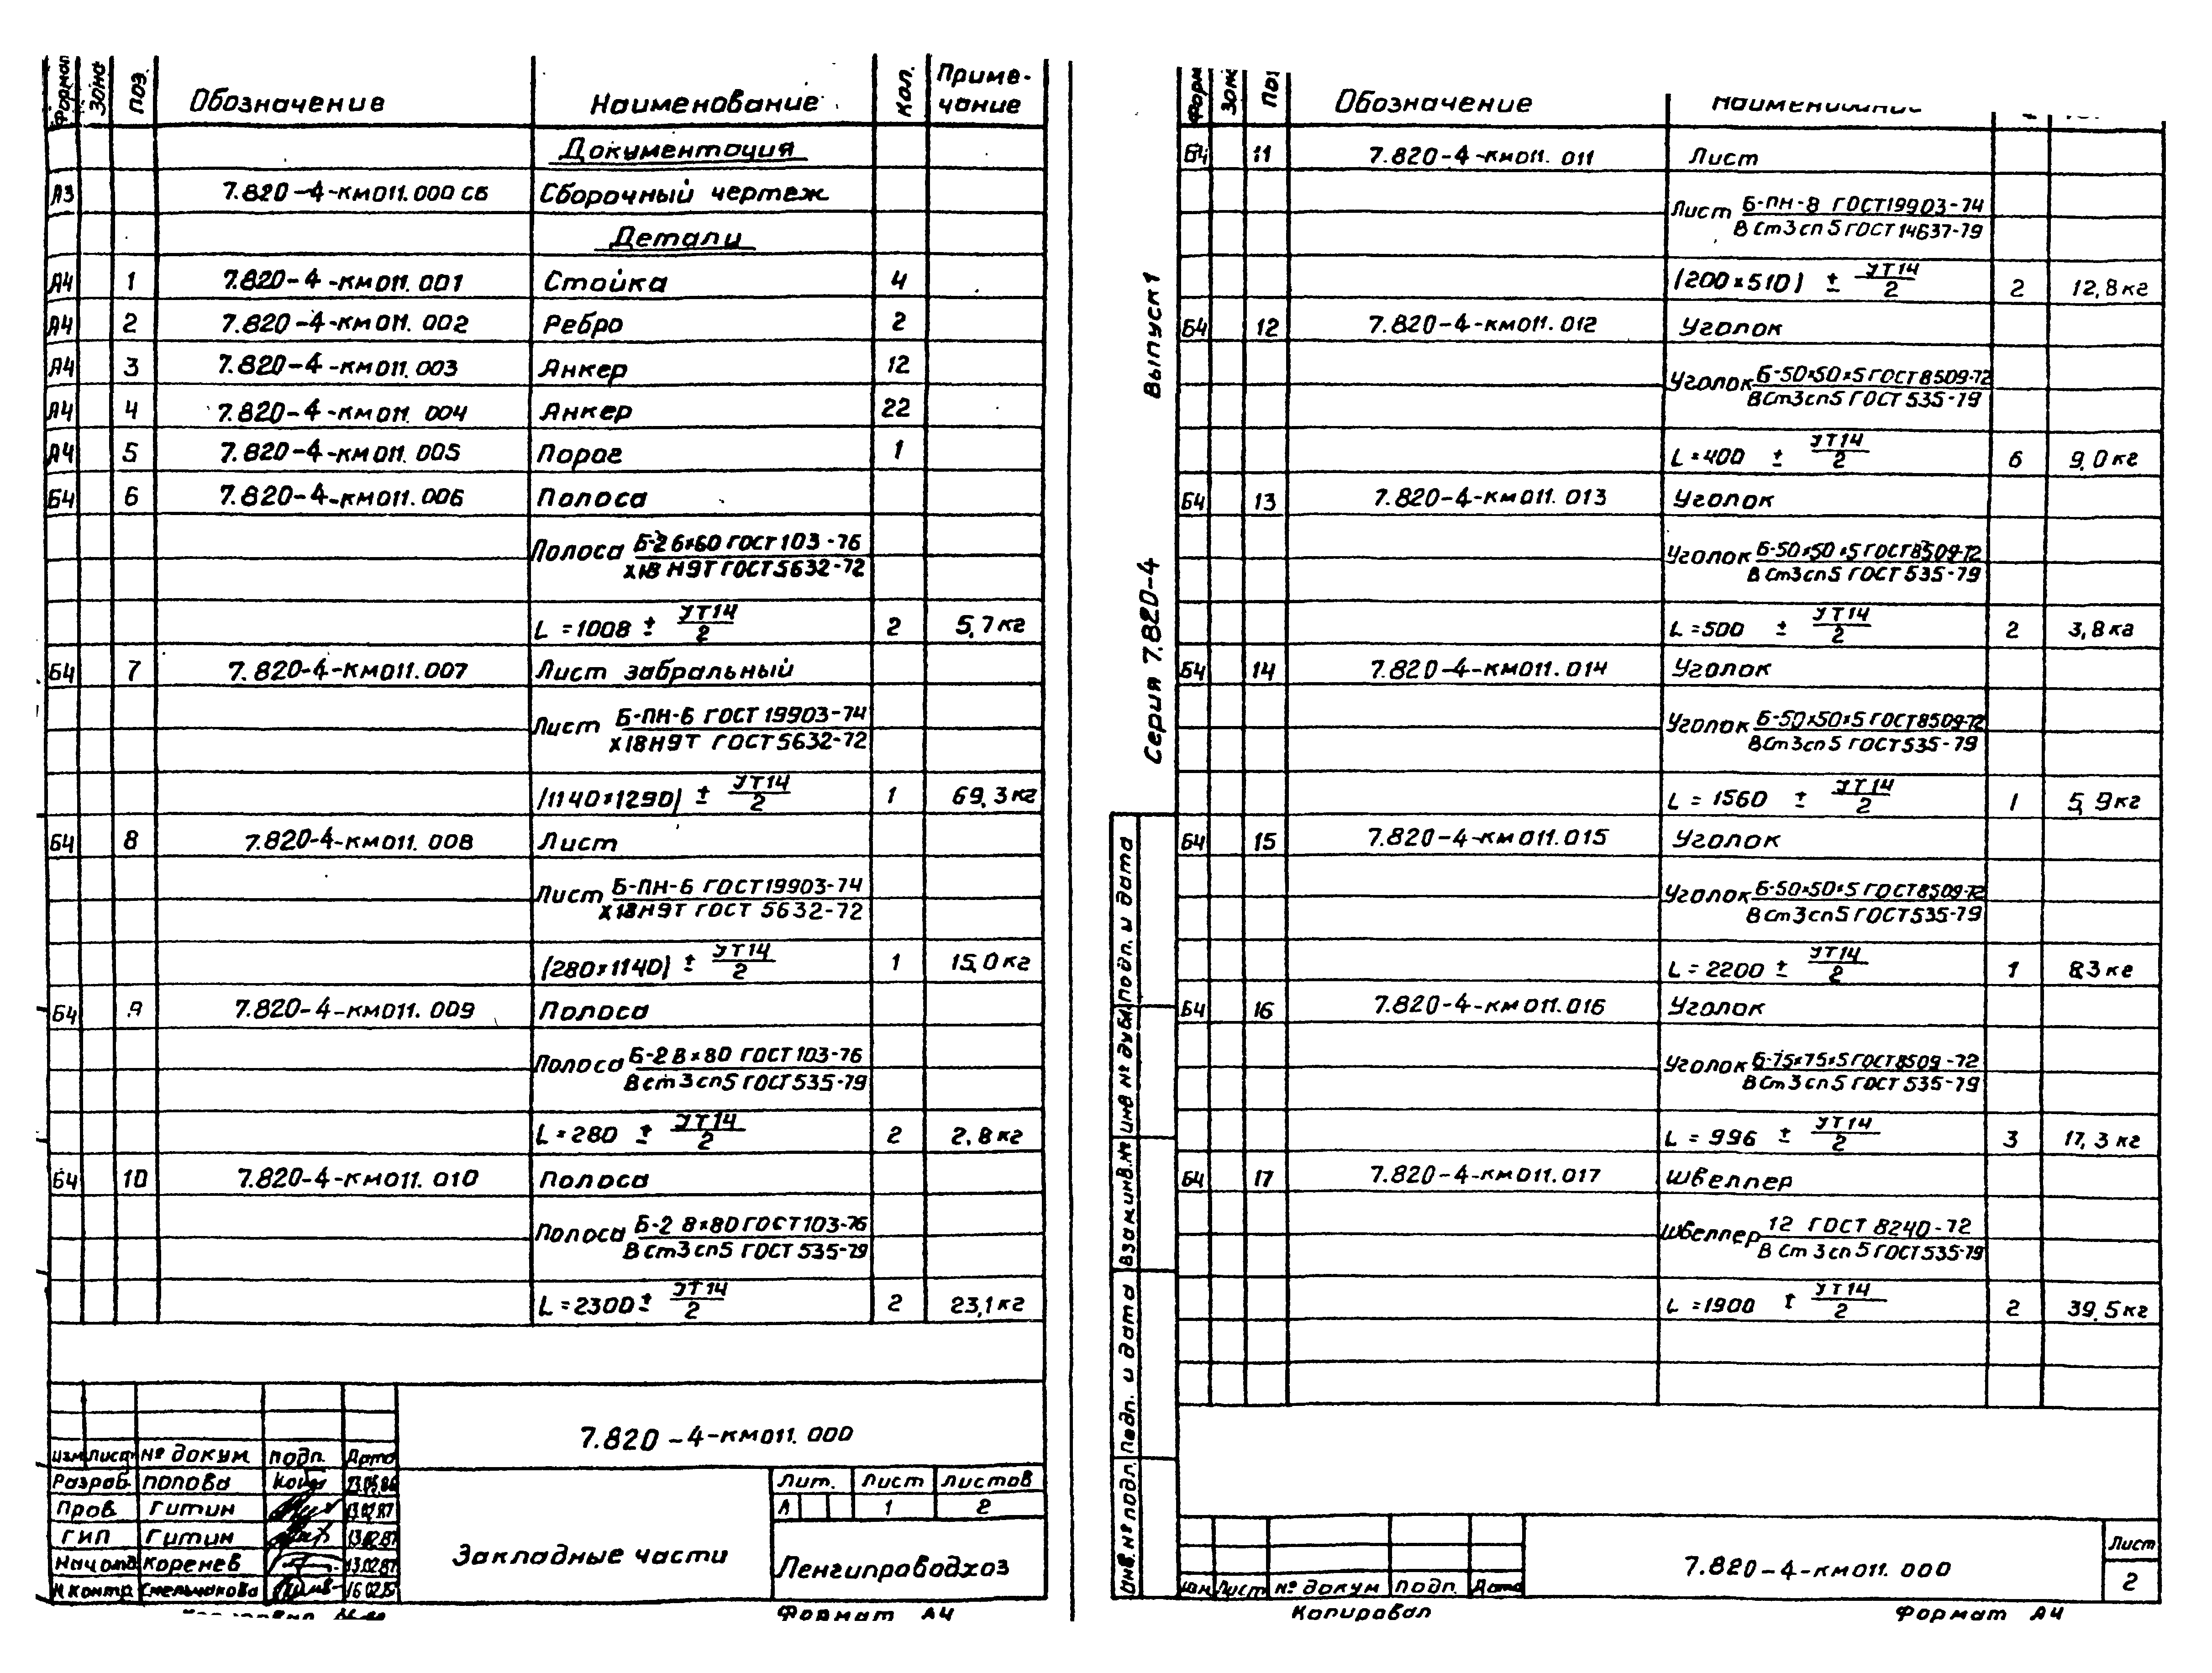 Формат Зона Поз. Обозначение Наименование Кол. Приме-
чание
Документация
А3 7.820-4-КМ011.000 СБ Сборочный чертеж
Детали
А4 1 7.820-4-КМ011.001 Стойка 4
А4 2 7.820-4-КМ011.002 Ребро 2
А4 3 7.820-4-КМ011.003 Анкер 12
А4 4 7.820-4-КМ011.004 Анкер 22
А4 5 7.820-4-КМ011.005 Порог 1
Б4 6 7.820-4-КМ011.006 Полоса
Полоса Б-2 6×60 ГОСТ 103-76
Х18Н9Т ГОСТ 5632-72
L=1008 ± УТ14/2 2 5,7 кг
Б4 7 7.820-4-КМ011.007 Лист забральный
Лист Б-ПН-6 ГОСТ 19903-74
Х18Н9Т ГОСТ 5632-72
(1140×1290) ± УТ14/2 1 69,3 кг
Б4 8 7.820-4-КМ011.008 Лист
Лист Б-ПН-6 ГОСТ 19903-74
Х18Н9Т ГОСТ 5632-72
(280×1140) ± УТ14/2 1 15,0 кг
Б4 9 7.820-4-КМ011.009 Полоса
Полоса Б-2 8×80 ГОСТ 103-76
ВСт3сп5 ГОСТ 535-79
L=280 ± УТ14/2 2 2,8 кг
Б4 10 7.820-4-КМ011.010 Полоса
Полоса Б-2 8×80 ГОСТ 103-76
ВСт3сп5 ГОСТ 535-79
L=2300 ± УТ14/2 2 23,1 кг
7.820-4-КМ011.000
Изм Лист № докум Подп. Дата
Разраб. Попова
Пров. Гитин 13.02.87
ГИП Гитин 13.02.87
Нач.отд Коренев 13.02.87
Н.контр Смельчакова 16.02.87
Закладные части
Лит. Лист Листов
А 1 2
Ленгипроводхоз
Копировал
Формат А4
Форм Зона Поз Обозначение Наименование
Б4 11 7.820-4-КМ011.011 Лист
Лист Б-ПН-8 ГОСТ 19903-74
ВСт3сп5 ГОСТ 14637-79
(200×510) ± УТ14/2 2 12,8 кг
Б4 12 7.820-4-КМ011.012 Уголок
Уголок Б-50×50×5 ГОСТ 8509-72
ВСт3сп5 ГОСТ 535-79
L=400 ± УТ14/2 6 9,0 кг
Б4 13 7.820-4-КМ011.013 Уголок
Уголок Б-50×50×5 ГОСТ 8509-72
ВСт3сп5 ГОСТ 535-79
L=500 ± УТ14/2 2 3,8 кг
Б4 14 7.820-4-КМ011.014 Уголок
Уголок Б-50×50×5 ГОСТ 8509-72
ВСт3сп5 ГОСТ 535-79
L=1560 ± УТ14/2 1 5,9 кг
Б4 15 7.820-4-КМ011.015 Уголок
Уголок Б-50×50×5 ГОСТ 8509-72
ВСт3сп5 ГОСТ 535-79
L=2200 ± УТ14/2 1 8,3 кг
Б4 16 7.820-4-КМ011.016 Уголок
Уголок Б-75×75×5 ГОСТ 8509-72
ВСт3сп5 ГОСТ 535-79
L=996 ± УТ14/2 3 17,3 кг
Б4 17 7.820-4-КМ011.017 Швеллер
Швеллер 12 ГОСТ 8240-72
ВСт3сп5 ГОСТ 535-79
L=1900 ± УТ14/2 2 39,5 кг
Серия 7.820-4 Выпуск 1
Инв. № подл. Подп. и дата Взам.инв.№ Инв № дубл. Подп. и дата
Изм Лист № докум Подп. Дата
7.820-4-КМ011.000
Лист
2
Копировал
Формат А4